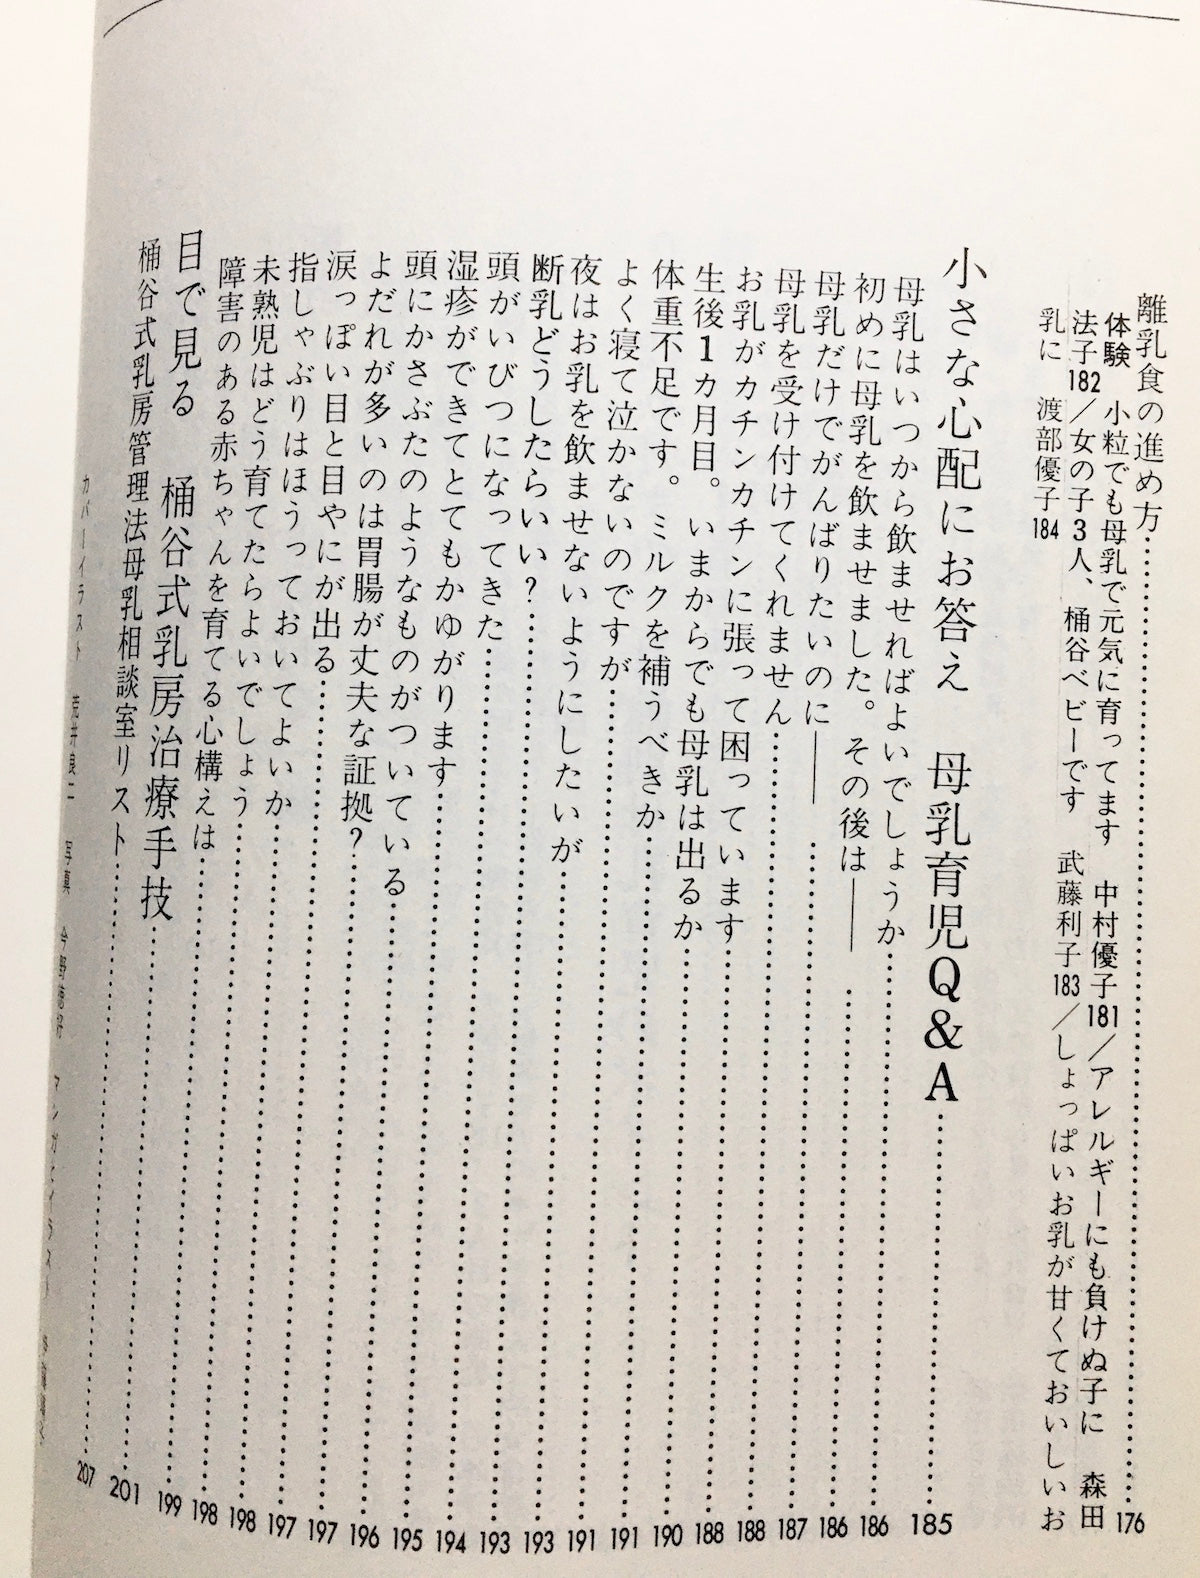 離乳食の進め方……176
体験 小粒でも母乳で元気に育ってます 中村優子181／アレルギーにも負けぬ子に 森田
法子182／女の子3人、桶谷ベビーです 武藤利子183／しょっぱいお乳が甘くておいしいお
乳に 渡部優子184
小さな心配にお答え 母乳育児Q&A……185
母乳はいつから飲ませればよいでしょうか……186
初めに母乳を飲ませました。その後は――……186
母乳だけでがんばりたいのに――……187
母乳を受け付けてくれません……188
お乳がカチンカチンに張って困っています……188
生後1カ月目。いまからでも母乳は出るか……190
体重不足です。ミルクを補うべきか……191
よく寝て泣かないのですが……191
夜はお乳を飲ませないようにしたいが……193
断乳どうしたらいい？……193
頭がいびつになってきた……194
湿疹ができてとてもかゆがります……195
頭にかさぶたのようなものがついている……196
よだれが多いのは胃腸が丈夫な証拠？……197
涙っぽい目と目やにが出る……197
指しゃぶりはほうっておいてよいか……198
未熟児はどう育てたらよいでしょう……198
障害のある赤ちゃんを育てる心構えは……199
目で見る 桶谷式乳房治療手技……201
桶谷式乳房管理法母乳相談室リスト……207
カバーイラスト 荒井良二 写真 今野 マンガとイラスト